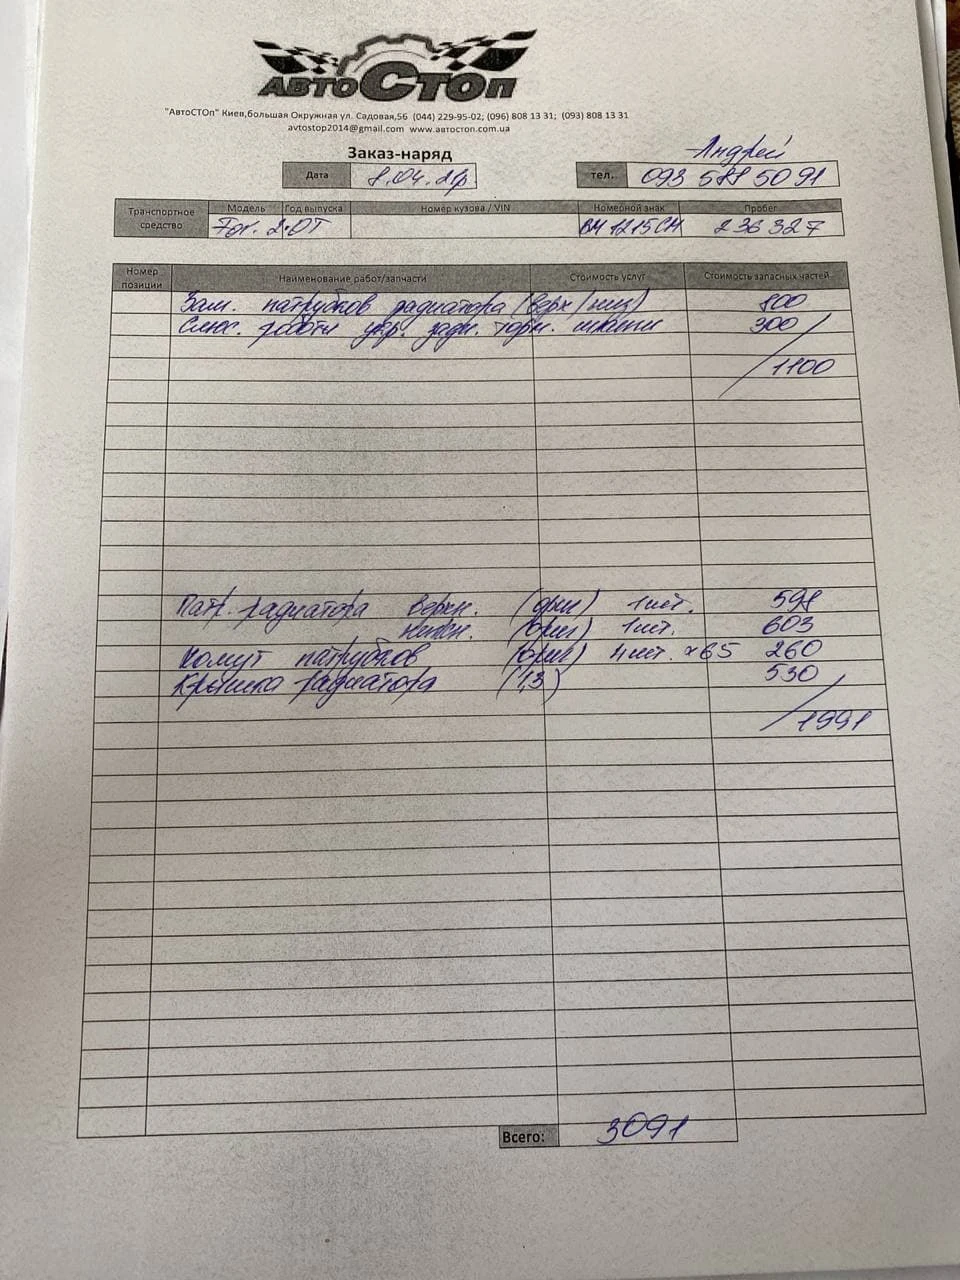 АВТОСТОП
"АвтоСТОп" Киев,большая Окружная ул. Садовая,56 (044) 229-95-02; (096) 808 13 31; (093) 808 13 31
avtostop2014@gmail.com www.автостоп.com.ua
Андрей
Заказ-наряд
Дата 8.04.21р тел. 093 588 50 91
Транспортное средство
Модель Год выпуска Номер кузова / VIN Номерной знак Пробег
For. 2.0T ВМ 1215СМ 236 327
Номер позиции Наименование работ/запчасти Стоимость услуг Стоимость запасных частей
Зам. патрубков радиатора (верх/низ) 800
Слес. работы задн. торм. 300
1100
Патр. радиатора верхн. (ориг) 1шт. 598
нижн. (ориг) 1шт. 603
Хомут патрубков (ориг) 4шт. х65 260
Крышка радиатора (1,3) 530
1991
Всего: 3091